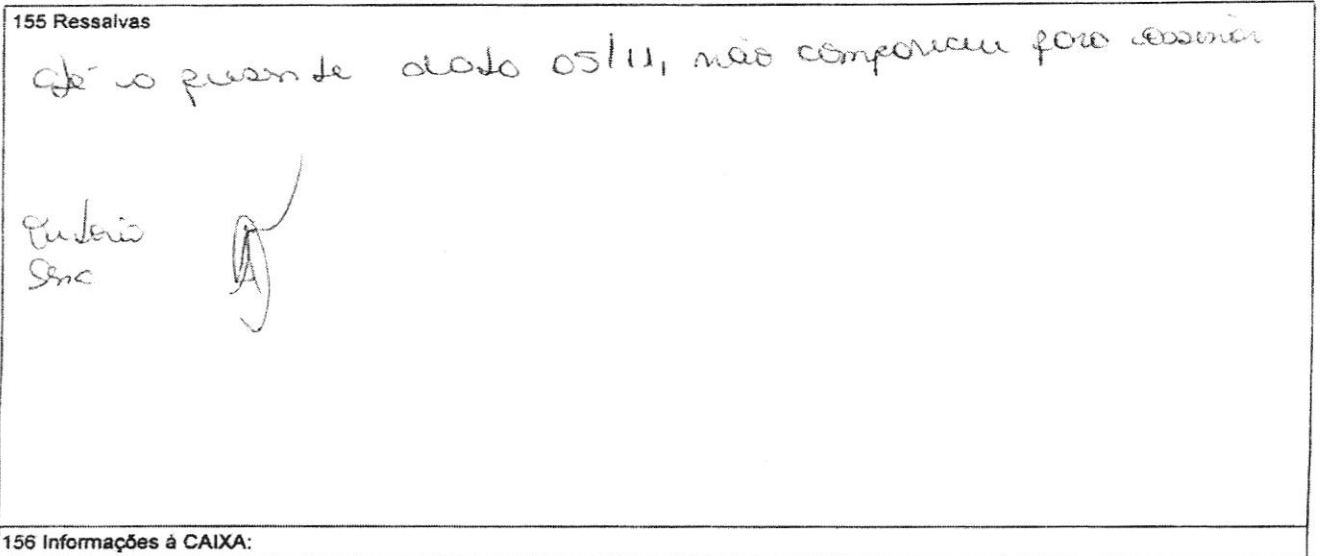 155 Ressalvas
até a presente data 05/11, não compareceu para assinar
156 Informações à CAIXA: